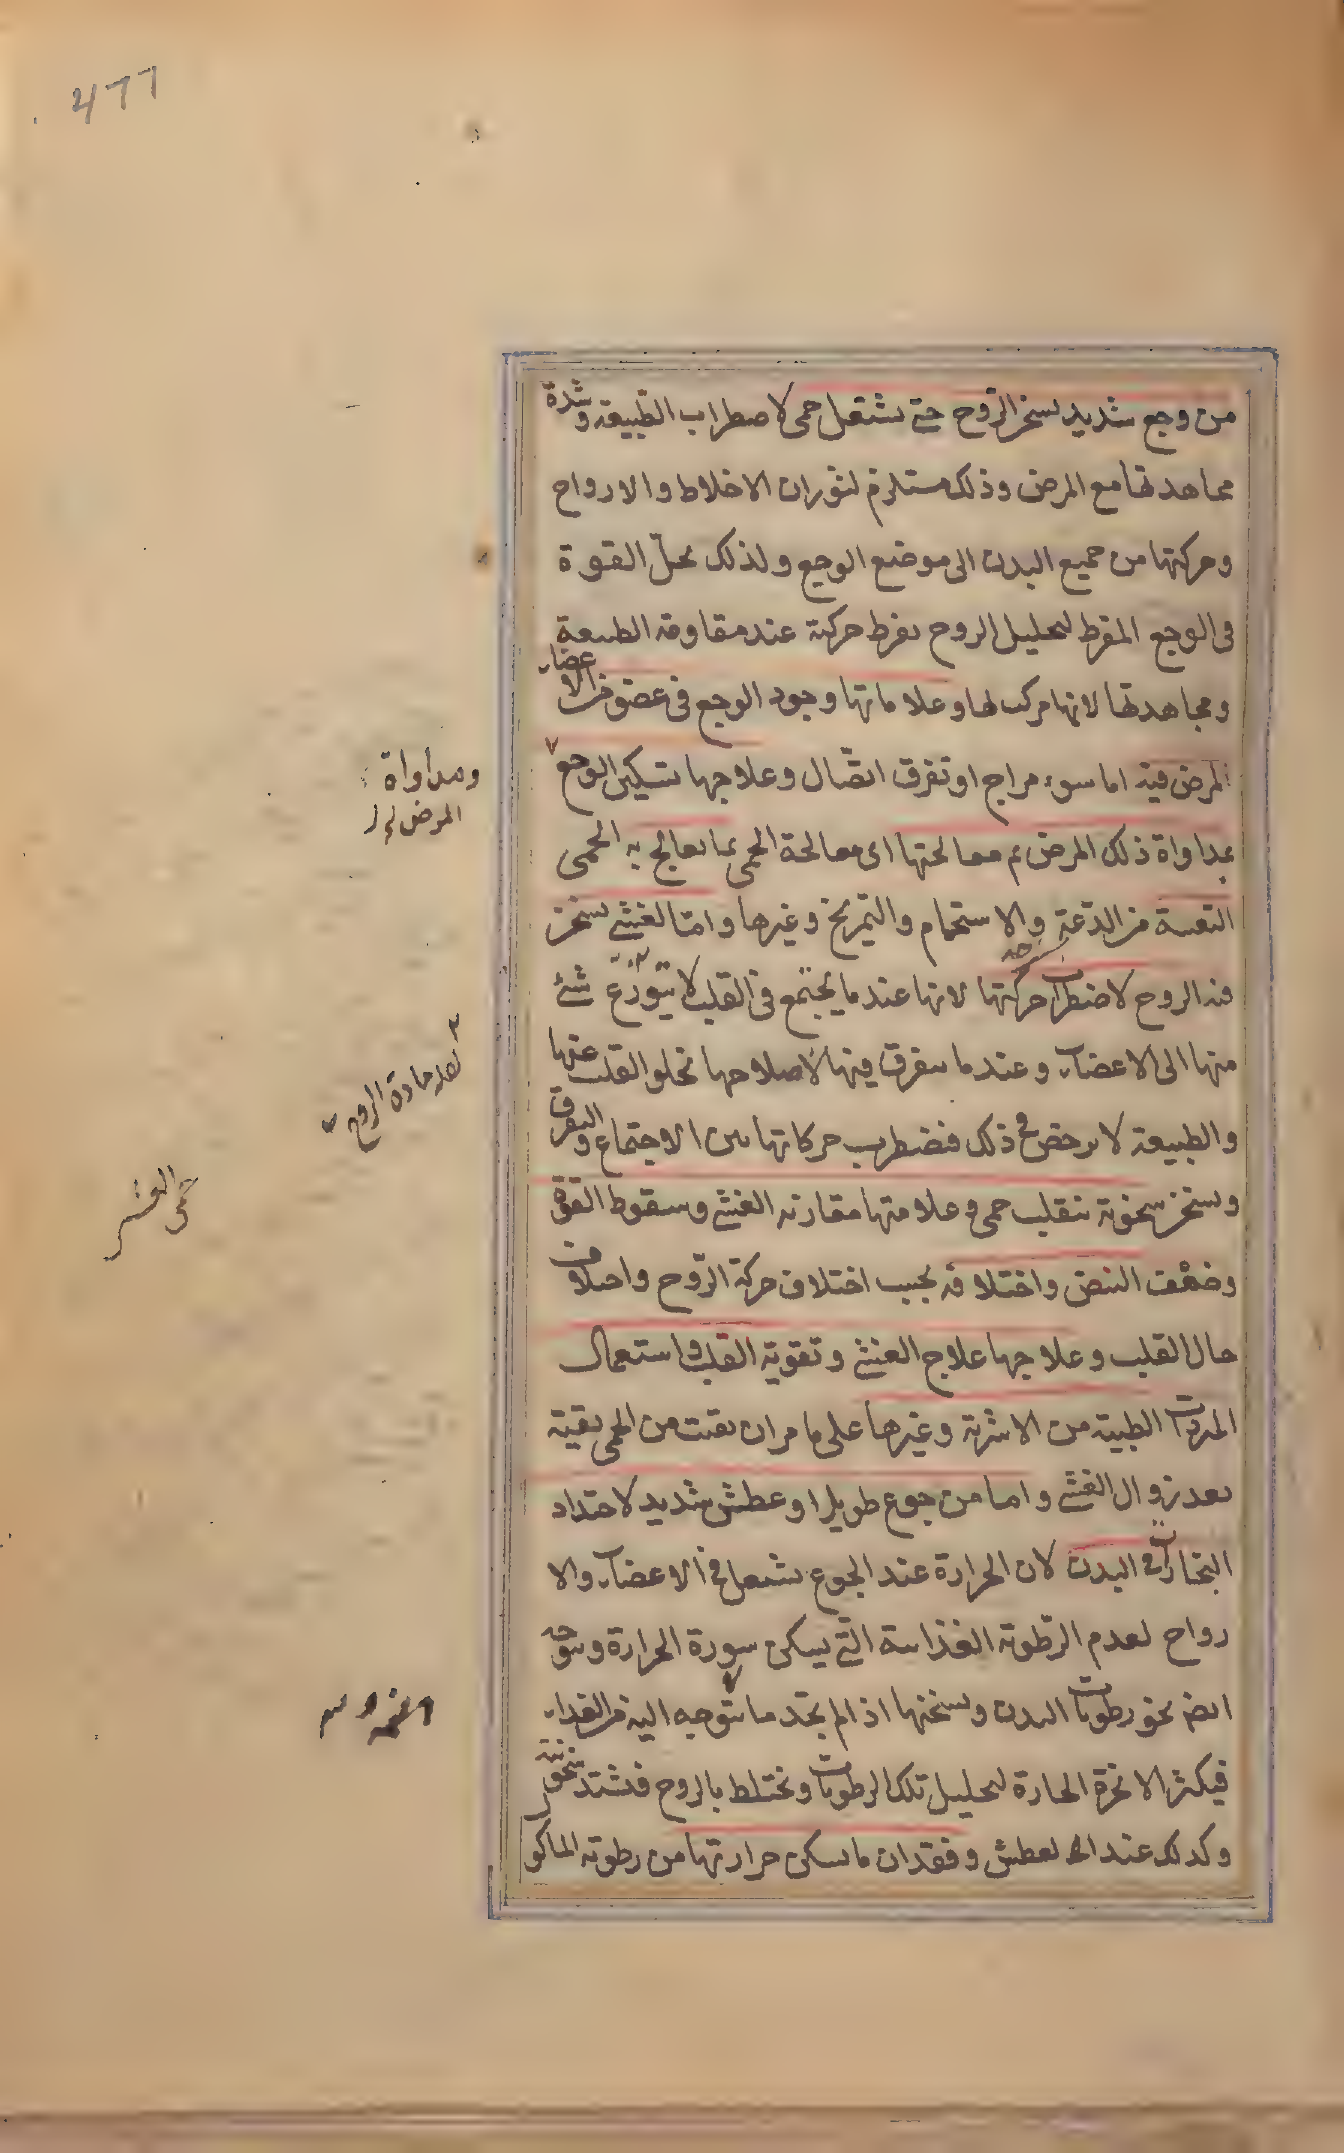 477
من وجع شديد يسخن الروح حتى يشتعل حمى لاضطراب الطبيعة وشدة
مجاهدتها مع المرض وذلك مستلزم لثوران الاخلاط والارواح
وحركتها من جميع البدن الى موضع الوجع ولذلك يحلّ القوة
فى الوجع المفرط لتحليل الروح بفرط حركته عند مقاومة الطبيعة
ومجاهدتها لانها مركب لها وعلاماتها وجود الوجع فى عضو من الاعضاء
المرض فيه اما سوء مزاج او تفرق اتصال وعلاجها تسكين الوجع
ومداواة
المرض
بمداواة ذلك المرض ثم معالجتها اى معالجة الحمى بما يعالج به الحمى
التعبية من الدعة والاستحمام والتمريخ وغيرها واما الغشى يسخن
فيه الروح لاضطراب حركتها لانها عندما يجتمع فى القلب لا يتوزع شئ
منها الى الاعضاء وعندما يتفرق فيها لاصلاحها تخلو القلب عنها
والطبيعة لا يرخص فى ذلك فيضطرب حركاتها بين الاجتماع والتفرق
حمى الغشى
ويسخن سخونة تنقلب حمى وعلامتها مقارنة الغشى وسقوط القوة
وضعف النبض واختلافه بحسب اختلاف حركة الروح واختلاف
حال القلب وعلاجها علاج الغشى وتقوية القلب واستعمال
المبردات الطيبة من الاشربة وغيرها على ما مر ان بقيت من الحمى بقية
بعد زوال الغشى واما من جوع طويل او عطش شديد لاحتداد
البخارات فى البدن لان الحرارة عند الجوع يشتعل فى الاعضاء والا
رواح لعدم الرطوبة الغذائية التى يسكن سورة الحرارة ويتوجه
ايضا نحو رطوبات البدن ويسخنها اذ لم تجد ما يتوجه اليه من الغذاء
فيكثر الابخرة الحارة لتحليل تلك الرطوبات وتختلط بالروح فيشتد سخونته
وكذلك عند العطش وفقدان ما يسكن حرارتها من رطوبة الماكو